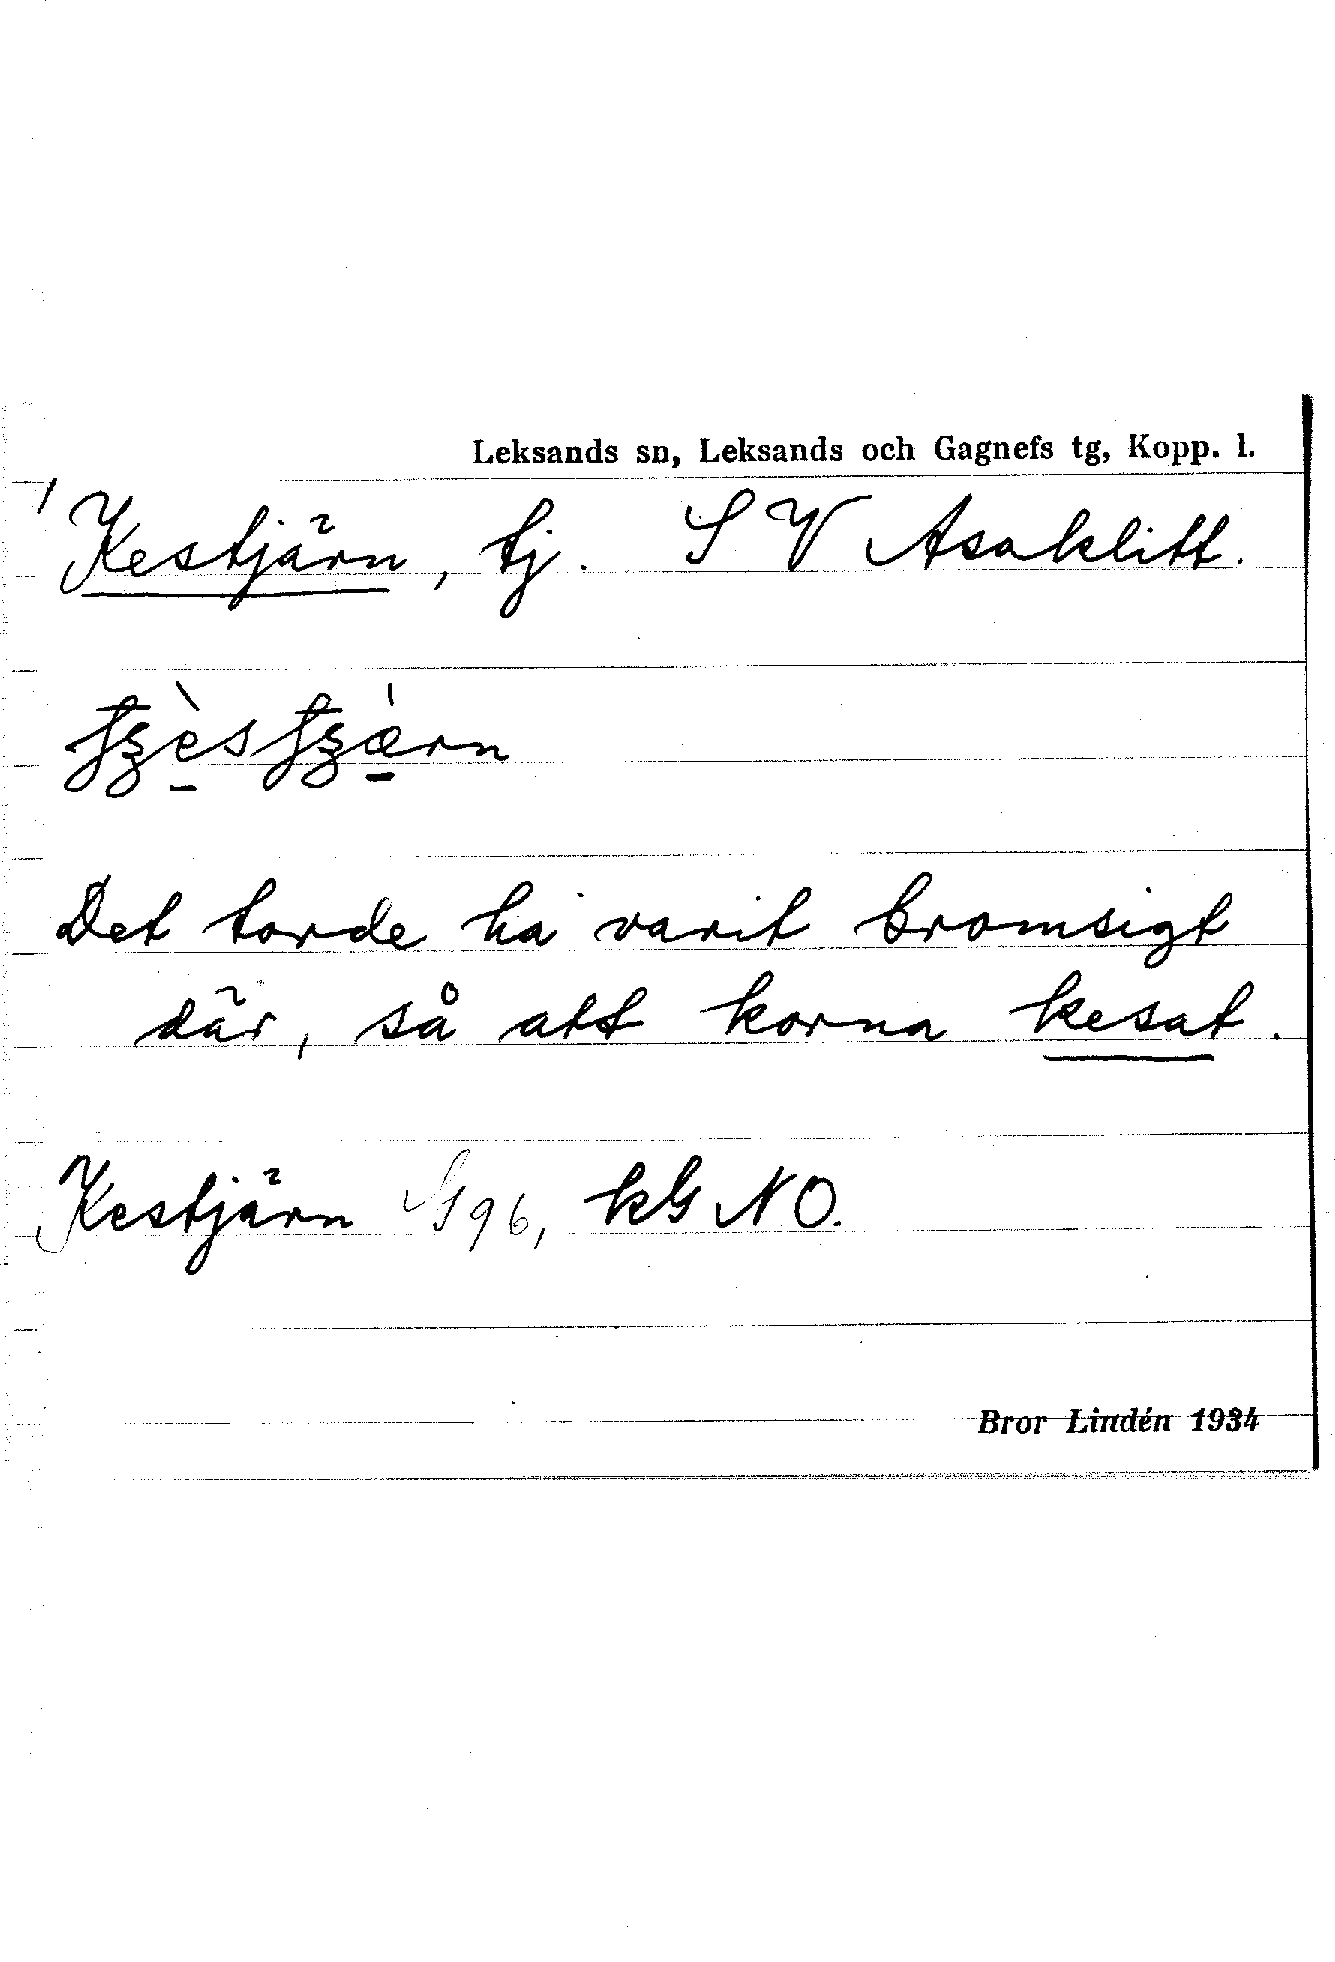 Leksands sn, Leksands och Gagnefs tg, Kopp. l.
Kestjärn, tj. S V Asaklitt.
Det torde ha varit bromsigt
där, så att korna kesat.
Kestjärn 96, kG NO.
Bror Lindén 1934